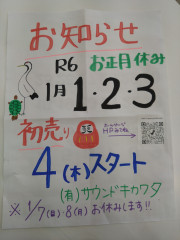 お知らせ
R6 お正月休み
1月 1・2・3
初売り
4(木)スタート
(有)サウンドキカワタ
※ 1/7(日)・8(月)お休みします!!